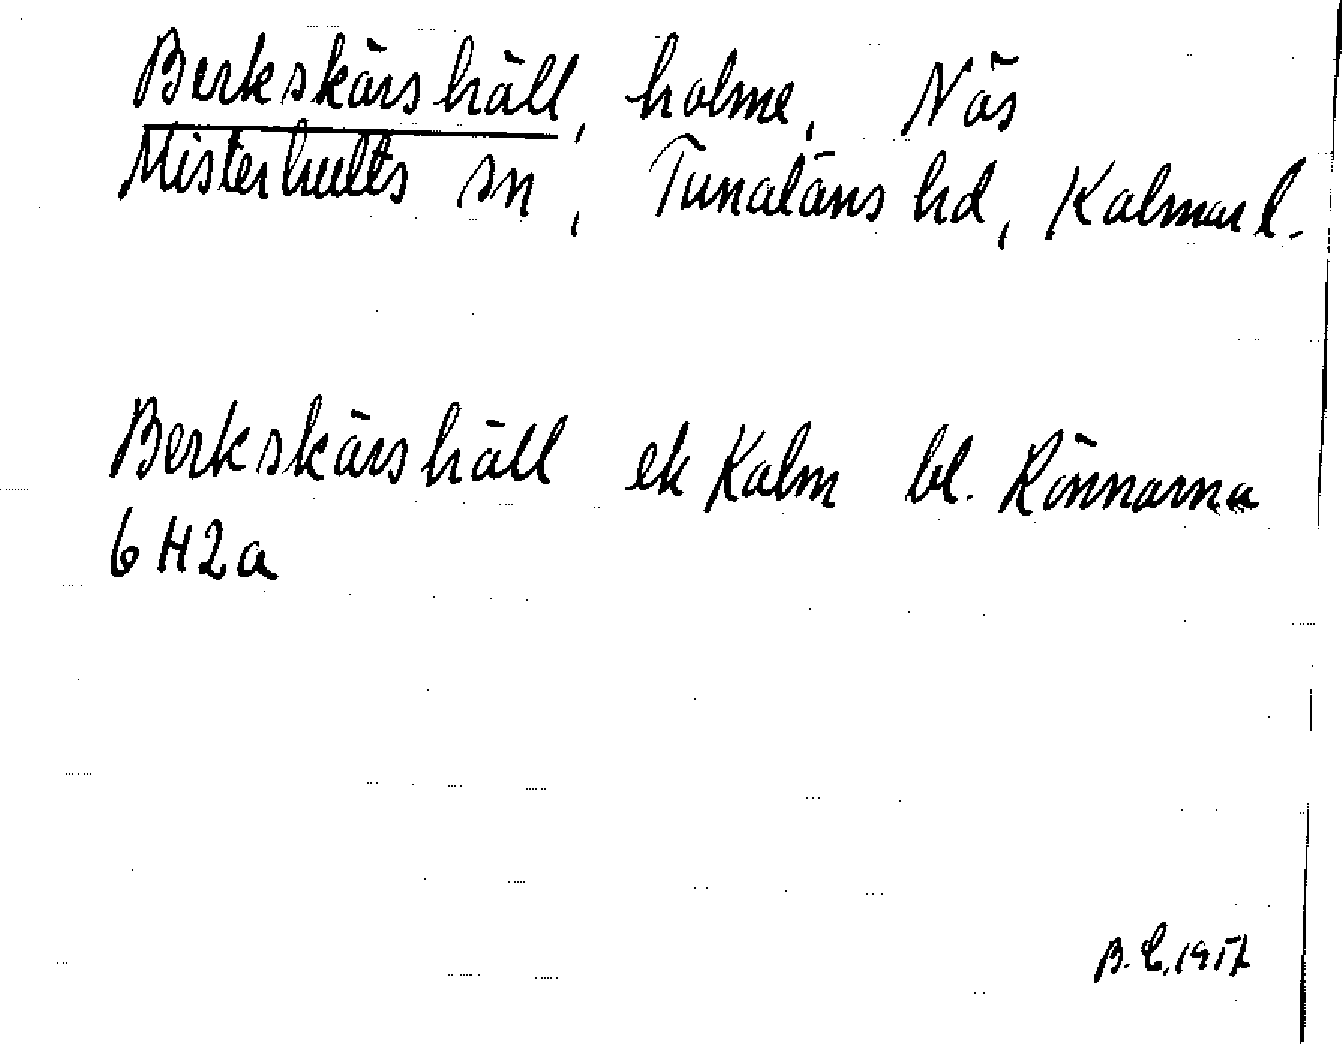 Berkskärshäll, holme, Näs
Misterhults sn, Tunaläns hd, Kalmar l.
Berkskärshäll ek Kalm bl. Rönnarna
6H2a
B.E. 1957